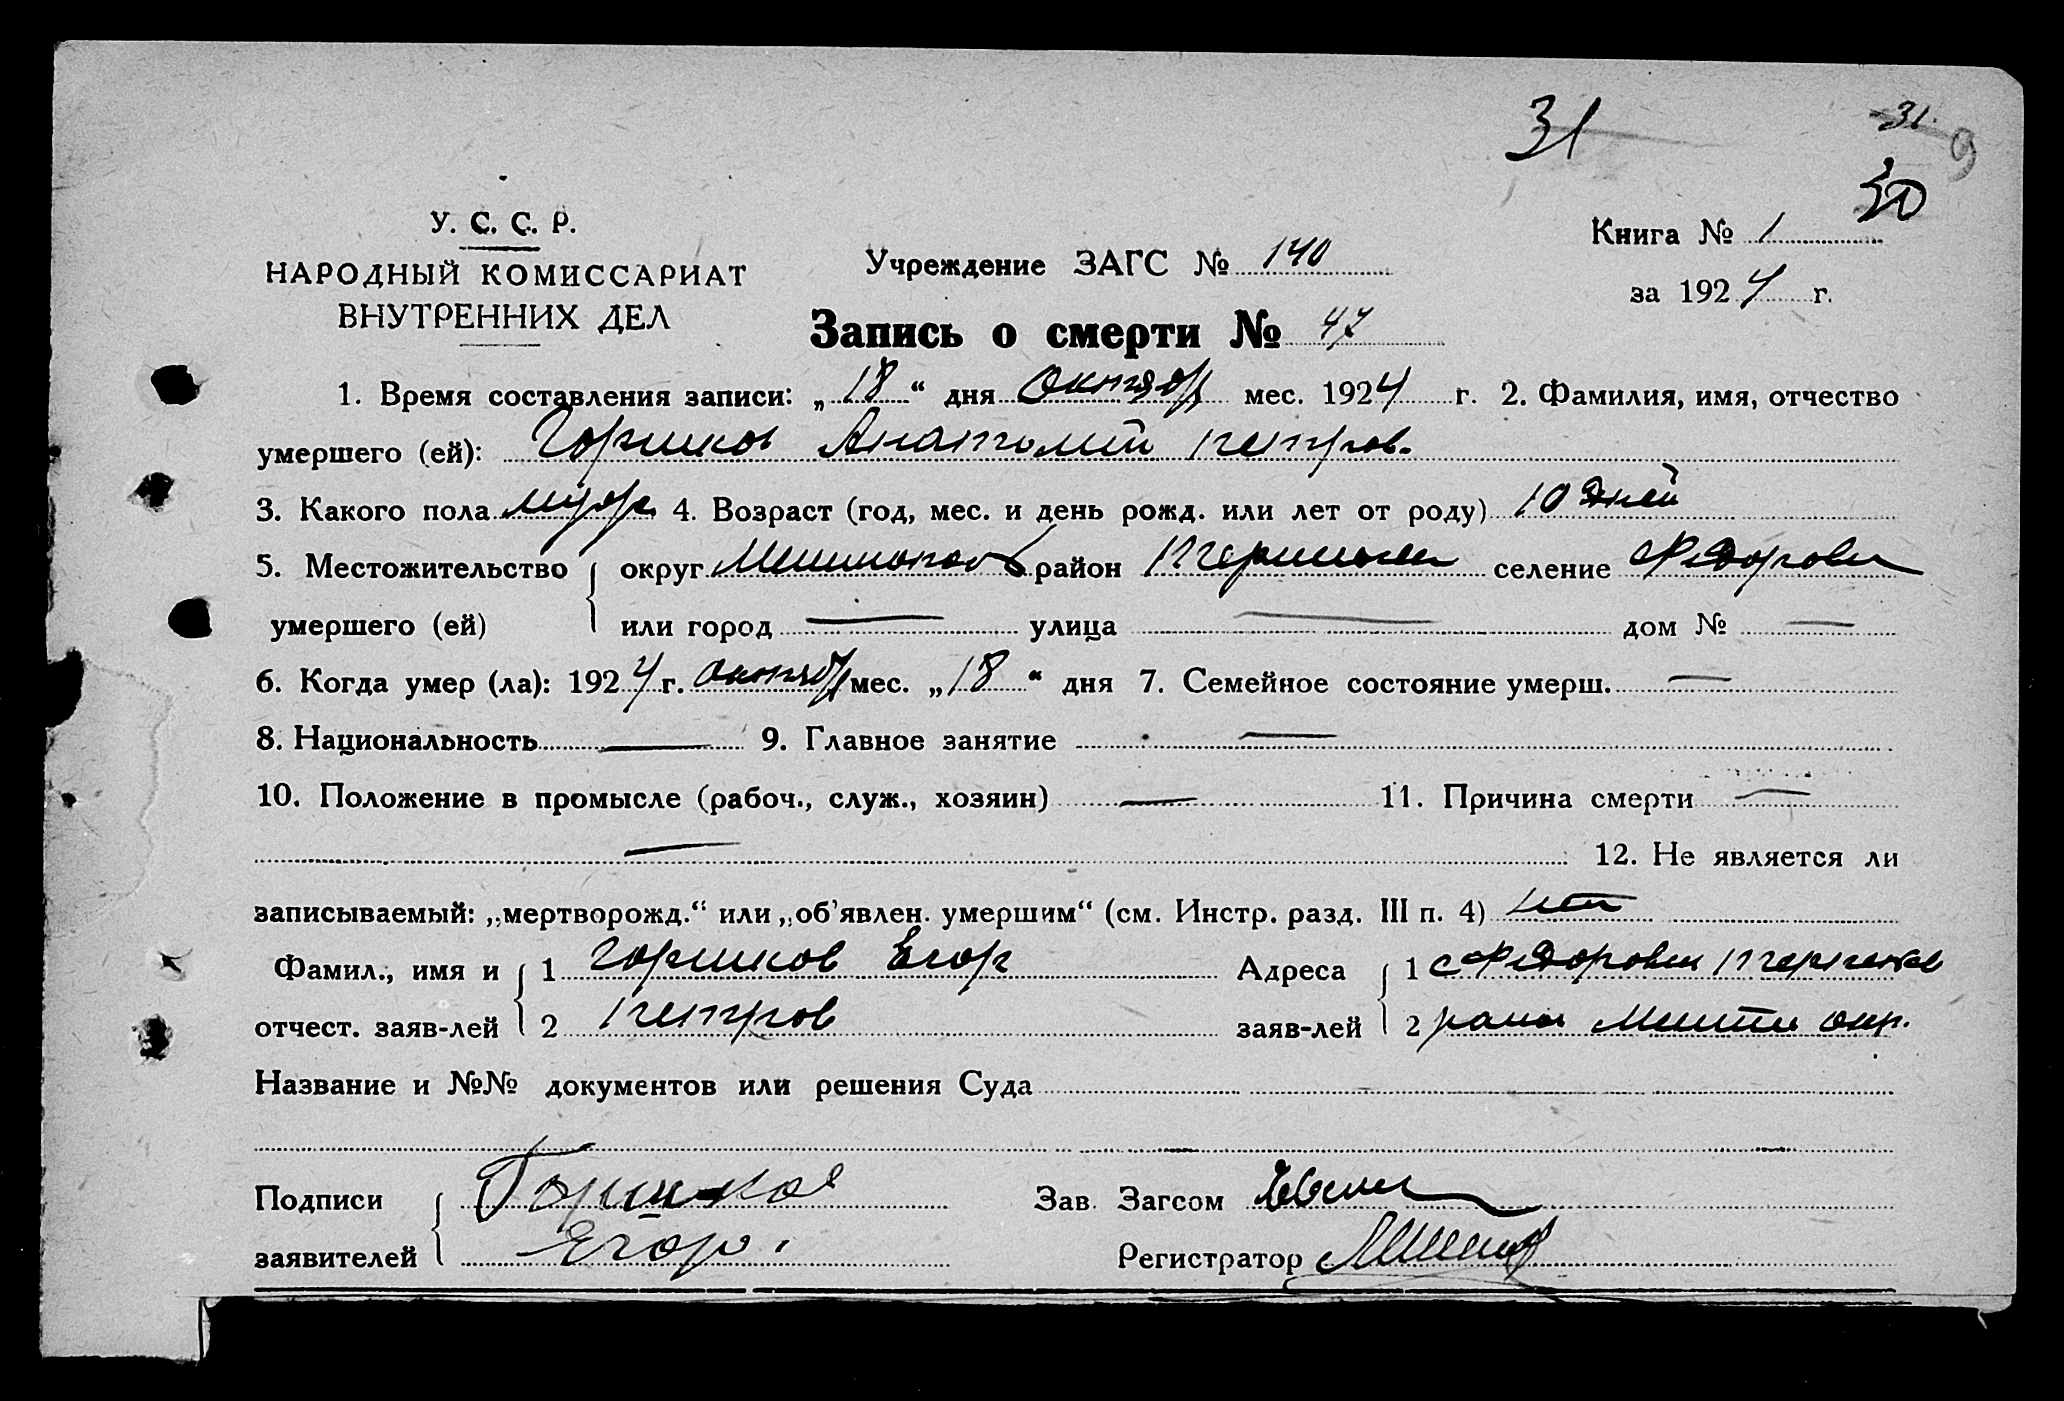 31 31. 9
30
У. С. С. Р.
НАРОДНЫЙ КОМИССАРИАТ
ВНУТРЕННИХ ДЕЛ
Учреждение ЗАГС № 140
Книга № 1
за 1924 г.
Запись о смерти № 47
1. Время составления записи: „18“ дня октябр мес. 1924 г. 2. Фамилия, имя, отчество
умершего (ей): Горшков Анатолий петров.
3. Какого пола муж. 4. Возраст (год, мес. и день рожд. или лет от роду) 10 дней
5. Местожительство округ район селение Федоровк
умершего (ей) или город — улица — дом № —
6. Когда умер (ла): 1924 г. октябр мес. „18“ дня 7. Семейное состояние умерш. —
8. Национальность — 9. Главное занятие —
10. Положение в промысле (рабоч., служ., хозяин) — 11. Причина смерти —
— 12. Не является ли
записываемый: „мертворожд.“ или „об’явлен. умершим“ (см. Инстр. разд. III п. 4) нет
Фамил., имя и 1 Горшков Егор Адреса 1 с Федоровки
отчест. заяв-лей 2 петров заяв-лей 2 окр.
Название и №№ документов или решения Суда
Подписи Горшков Зав. Загсом
заявителей Егор. Регистратор